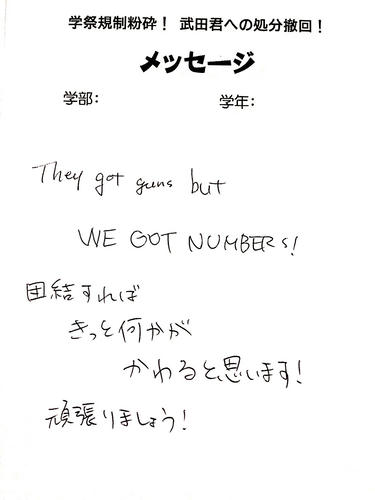 学祭規制粉砕！ 武田君への処分撤回！
メッセージ
学部： 学年：
They got guns but
WE GOT NUMBERS!
団結すれば
きっと何かが
かわると思います！
頑張りましょう！